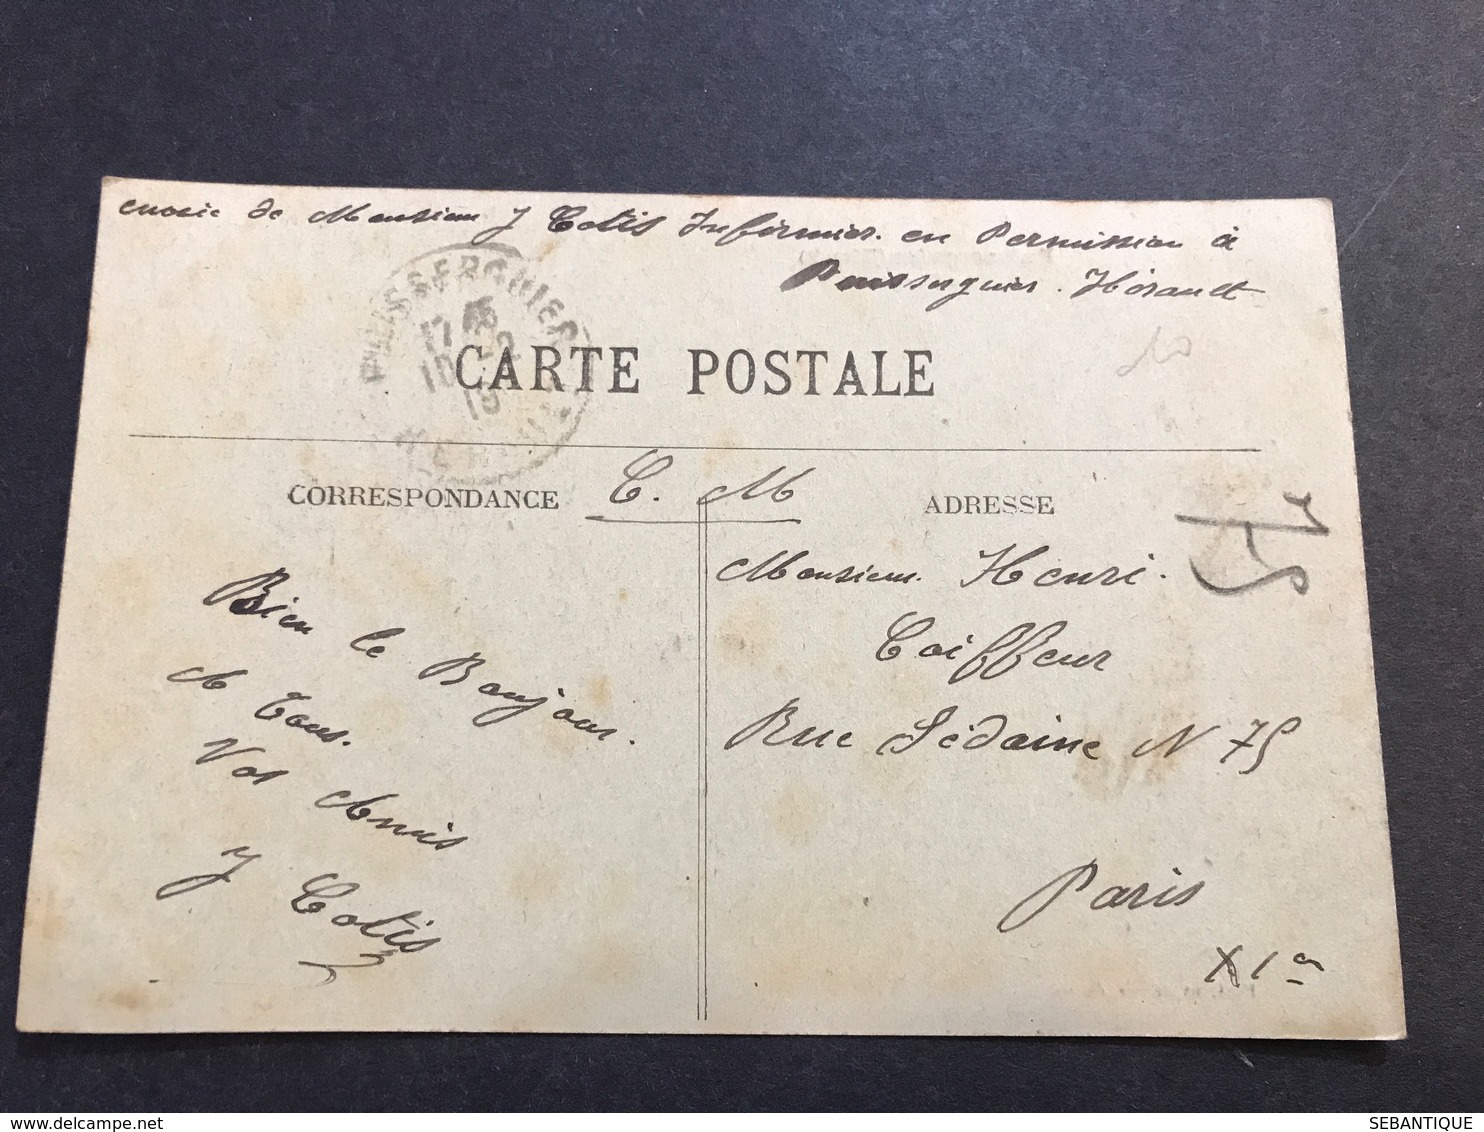 envoie de Monsieur J Cotis Infirmier. en Permission à
Puisserguier. Hérault
PUISSERGUIER
17
15
HERAULT
10
CARTE POSTALE
CORRESPONDANCE
C. M
ADRESSE
75
Bien le Bonjour.
A Tous.
Vos Amis
J Cotis
Monsieur. Henri.
Coiffeur
Rue Sédaine N 75
Paris
XI e
SEBANTIQUE